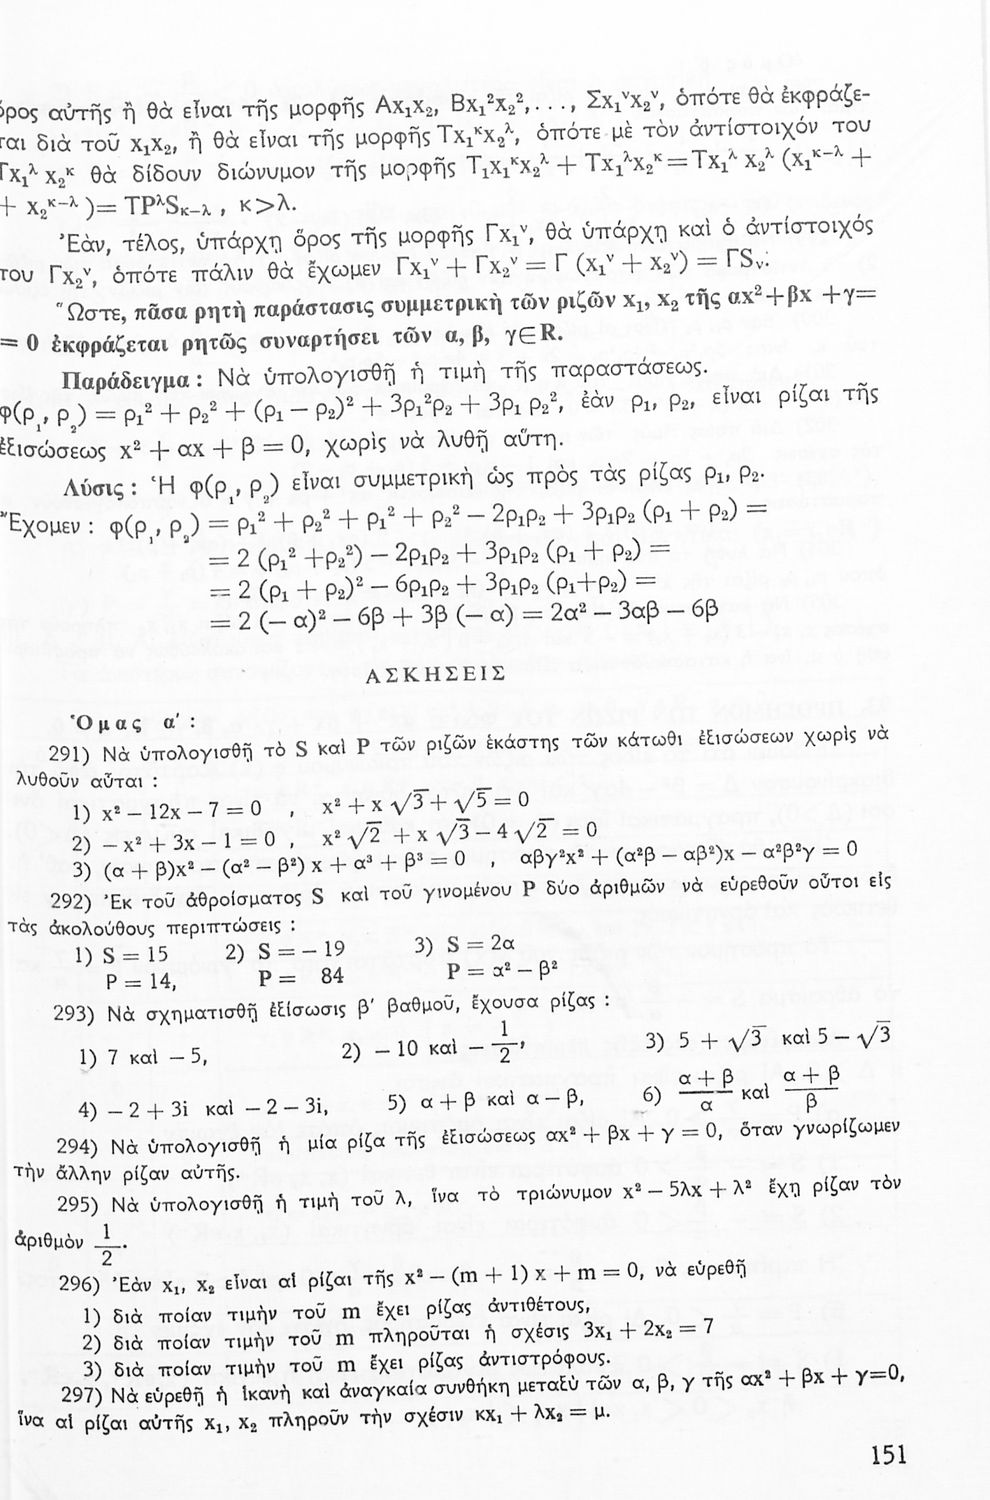 ὅρος αὐτῆς ἢ θὰ εἶναι τῆς μορφῆς Αx₁x₂, Βx₁²x₂²,..., Σx₁ᵛx₂ᵛ, ὁπότε θὰ ἐκφράζε-
ται διὰ τοῦ x₁x₂, ἢ θὰ εἶναι τῆς μορφῆς Τx₁ᵏx₂^λ, ὁπότε μὲ τὸν ἀντίστοιχόν του
Τx₁^λ x₂ᵏ θὰ δίδουν διώνυμον τῆς μορφῆς Τ₁x₁ᵏx₂^λ + Τx₁^λx₂ᵏ = Τx₁^λ x₂^λ (x₁^{κ−λ} +
+ x₂^{κ−λ} ) = ΤΡ^λS_{κ−λ} , κ>λ.
Ἐὰν, τέλος, ὑπάρχῃ ὅρος τῆς μορφῆς Γx₁ᵛ, θὰ ὑπάρχῃ καὶ ὁ ἀντίστοιχός
του Γx₂ᵛ, ὁπότε πάλιν θὰ ἔχωμεν Γx₁ᵛ + Γx₂ᵛ = Γ (x₁ᵛ + x₂ᵛ) = ΓSᵥ.
Ὥστε, πᾶσα ρητὴ παράστασις συμμετρικὴ τῶν ριζῶν x₁, x₂ τῆς αx²+βx +γ=
= 0 ἐκφράζεται ρητῶς συναρτήσει τῶν α, β, γ∈R.
Παράδειγμα : Νὰ ὑπολογισθῇ ἡ τιμὴ τῆς παραστάσεως.
φ(ρ₁, ρ₂) = ρ₁² + ρ₂² + (ρ₁ − ρ₂)² + 3ρ₁²ρ₂ + 3ρ₁ ρ₂², ἐὰν ρ₁, ρ₂, εἶναι ρίζαι τῆς
ἐξισώσεως x² + αx + β = 0, χωρὶς νὰ λυθῇ αὕτη.
Λύσις : Ἡ φ(ρ₁, ρ₂) εἶναι συμμετρικὴ ὡς πρὸς τὰς ρίζας ρ₁, ρ₂.
Ἔχομεν : φ(ρ₁, ρ₂) = ρ₁² + ρ₂² + ρ₁² + ρ₂² − 2ρ₁ρ₂ + 3ρ₁ρ₂ (ρ₁ + ρ₂) =
= 2 (ρ₁² +ρ₂²) − 2ρ₁ρ₂ + 3ρ₁ρ₂ (ρ₁ + ρ₂) =
= 2 (ρ₁ + ρ₂)² − 6ρ₁ρ₂ + 3ρ₁ρ₂ (ρ₁+ρ₂) =
= 2 (− α)² − 6β + 3β (− α) = 2α² − 3αβ − 6β
ΑΣΚΗΣΕΙΣ
Ὁμας α' :
291) Νὰ ὑπολογισθῇ τὸ S καὶ P τῶν ριζῶν ἑκάστης τῶν κάτωθι ἐξισώσεων χωρὶς νὰ
λυθοῦν αὗται :
1) x² − 12x − 7 = 0 , x² + x √3 + √5 = 0
2) − x² + 3x − 1 = 0 , x² √2 + x √3 − 4 √2 = 0
3) (α + β)x² − (α² − β²) x + α³ + β³ = 0 , αβγ²x² + (α²β − αβ²)x − α²β²γ = 0
292) Ἐκ τοῦ ἀθροίσματος S καὶ τοῦ γινομένου P δύο ἀριθμῶν νὰ εὑρεθοῦν οὗτοι εἰς
τὰς ἀκολούθους περιπτώσεις :
1) S = 15 2) S = − 19 3) S = 2α
P = 14, P = 84 P = α² − β²
293) Νὰ σχηματισθῇ ἐξίσωσις β' βαθμοῦ, ἔχουσα ρίζας :
1) 7 καὶ − 5, 2) − 10 καὶ − 1/2, 3) 5 + √3 καὶ 5 − √3
4) − 2 + 3i καὶ − 2 − 3i, 5) α + β καὶ α − β, 6) (α + β)/α καὶ (α + β)/β
294) Νὰ ὑπολογισθῇ ἡ μία ρίζα τῆς ἐξισώσεως αx² + βx + γ = 0, ὅταν γνωρίζωμεν
τὴν ἄλλην ρίζαν αὐτῆς.
295) Νὰ ὑπολογισθῇ ἡ τιμὴ τοῦ λ, ἵνα τὸ τριώνυμον x² − 5λx + λ² ἔχῃ ρίζαν τὸν
ἀριθμὸν 1/2.
296) Ἐὰν x₁, x₂ εἶναι αἱ ρίζαι τῆς x² − (m + 1) x + m = 0, νὰ εὑρεθῇ
1) διὰ ποίαν τιμὴν τοῦ m ἔχει ρίζας ἀντιθέτους,
2) διὰ ποίαν τιμὴν τοῦ m πληροῦται ἡ σχέσις 3x₁ + 2x₂ = 7
3) διὰ ποίαν τιμὴν τοῦ m ἔχει ρίζας ἀντιστρόφους.
297) Νὰ εὑρεθῇ ἡ ἱκανὴ καὶ ἀναγκαία συνθήκη μεταξὺ τῶν α, β, γ τῆς αx² + βx + γ=0,
ἵνα αἱ ρίζαι αὐτῆς x₁, x₂ πληροῦν τὴν σχέσιν κx₁ + λx₂ = μ.
151